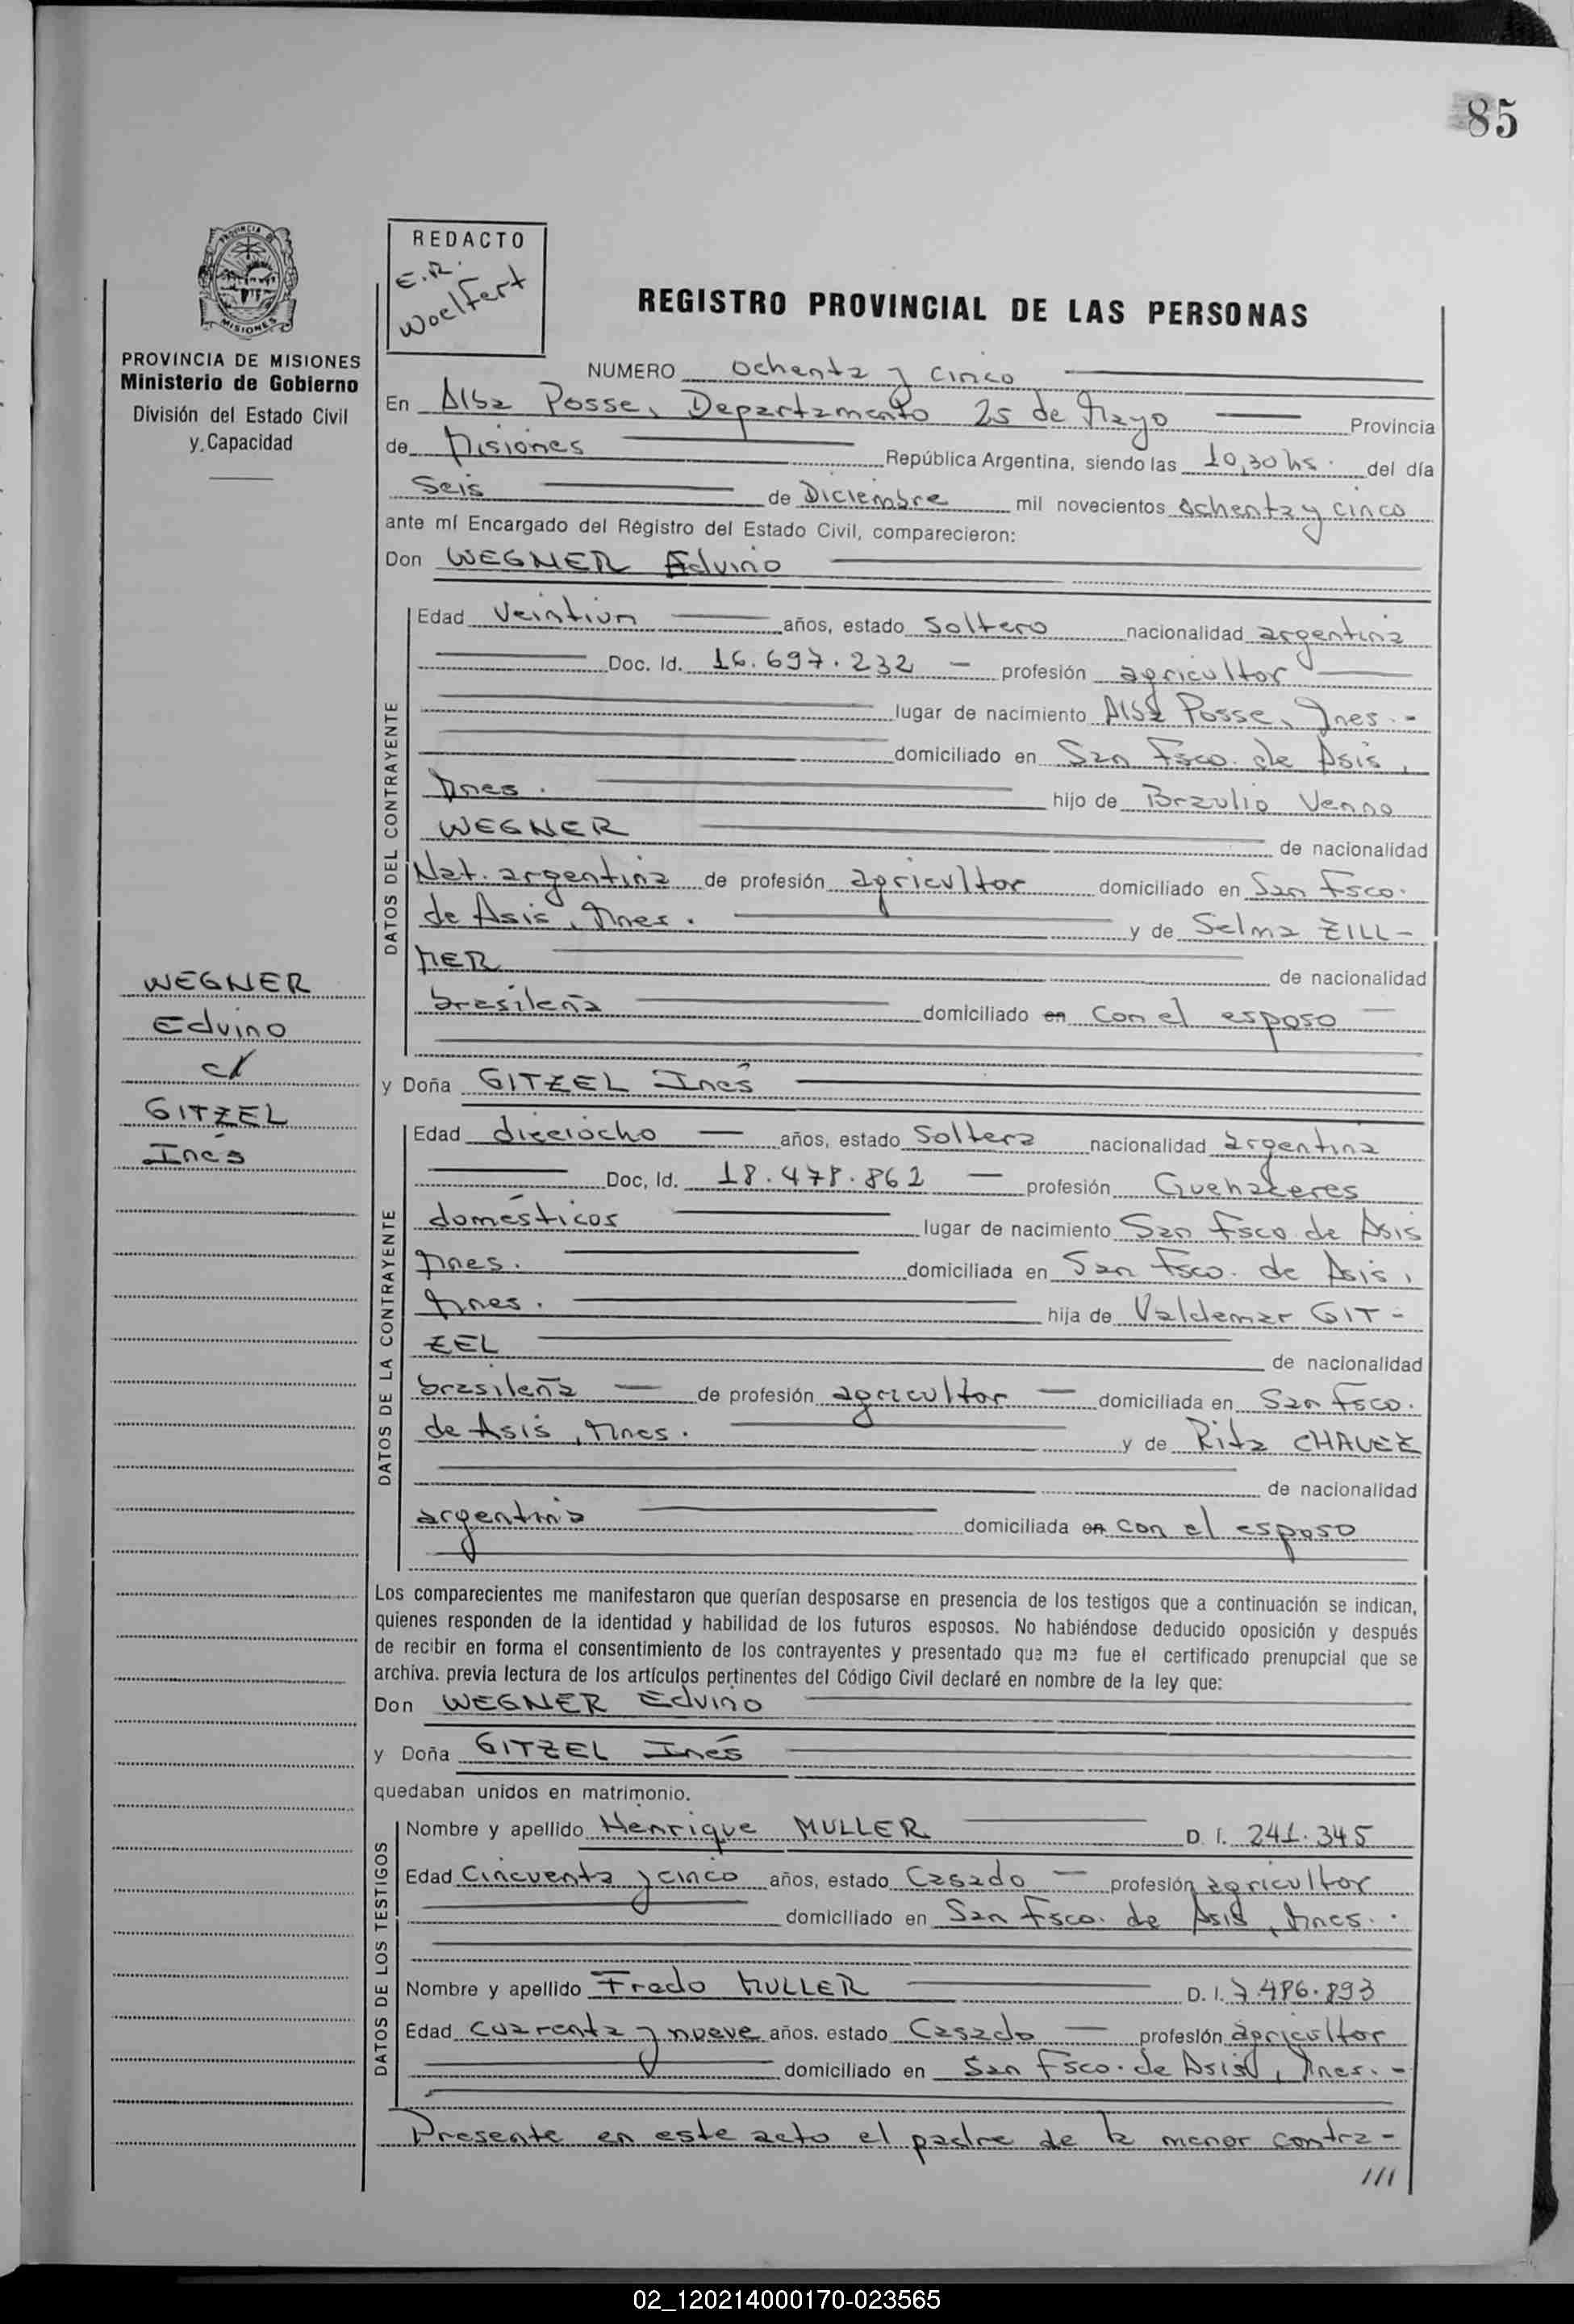 85
PROVINCIA DE
MISIONES
PROVINCIA DE MISIONES
Ministerio de Gobierno
División del Estado Civil
y Capacidad
REDACTO
E.R.
Woelfert
REGISTRO PROVINCIAL DE LAS PERSONAS
NUMERO ochenta y cinco
En Alba Posse, Departamento 25 de Mayo Provincia
de Misiones República Argentina, siendo las 10,30 hs. del día
Seis de Diciembre mil novecientos ochenta y cinco
ante mí Encargado del Registro del Estado Civil, comparecieron:
Don WEGNER Edvino
DATOS DEL CONTRAYENTE
Edad Veintiun años, estado Soltero nacionalidad argentina
Doc. Id. 16.697.232 - profesión agricultor
lugar de nacimiento Alba Posse, Mnes. -
domiciliado en San Fsco. de Asis,
Mnes. hijo de Braulio Venno
WEGNER de nacionalidad
Nat. argentina de profesión agricultor domiciliado en San Fsco.
de Asis, Mnes. y de Selma ZILL-
MER de nacionalidad
brasileña domiciliado en con el esposo
WEGNER
Edvino
c/
GITZEL
Inés
y Doña GITZEL Inés
DATOS DE LA CONTRAYENTE
Edad dieciocho años, estado Soltera nacionalidad argentina
Doc, Id. 18.478.862 - profesión Quehaceres
domésticos lugar de nacimiento San Fsco. de Asis
Mnes. domiciliada en San Fsco. de Asis,
Mnes. hija de Valdemar GIT-
ZEL de nacionalidad
brasileña - de profesión agricultor - domiciliada en San Fsco.
de Asis, Mnes. y de Rita CHAVEZ
de nacionalidad
argentina domiciliada en con el esposo
Los comparecientes me manifestaron que querían desposarse en presencia de los testigos que a continuación se indican,
quienes responden de la identidad y habilidad de los futuros esposos. No habiéndose deducido oposición y después
de recibir en forma el consentimiento de los contrayentes y presentado que me fue el certificado prenupcial que se
archiva. previa lectura de los artículos pertinentes del Código Civil declaré en nombre de la ley que:
Don WEGNER Edvino
y Doña GITZEL Inés
quedaban unidos en matrimonio.
DATOS DE LOS TESTIGOS
Nombre y apellido Henrique MULLER D. I. 241.345
Edad Cincuenta y cinco años, estado Casado - profesión agricultor
domiciliado en San Fsco. de Asis, Mnes. .
Nombre y apellido Fredo MULLER D. I. 7.486.893
Edad Cuarenta y nueve años. estado Casado - profesión agricultor
domiciliado en San Fsco. de Asis, Mnes. -
Presente en este acto el padre de la menor contra-
///
02_120214000170-023565